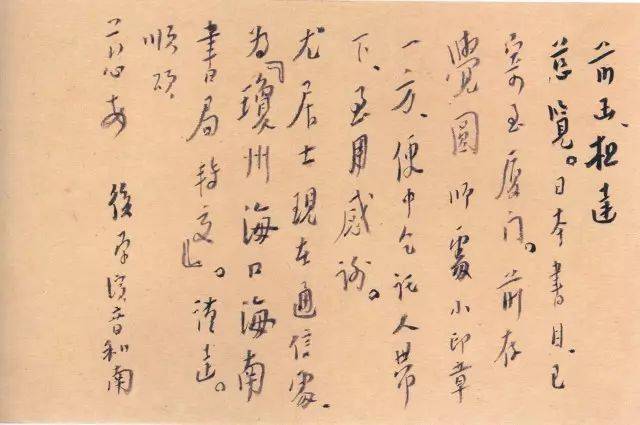 前函、想達
慈覽。日本書目、已
寄至廈门。前存
覺圓師處小印章
一方、便中乞託人帶
下、至用感謝。
尤居士現在通信處、
為『瓊州海口海南
書局轉交』。謹達。
順頌
慈安 後學演音和南